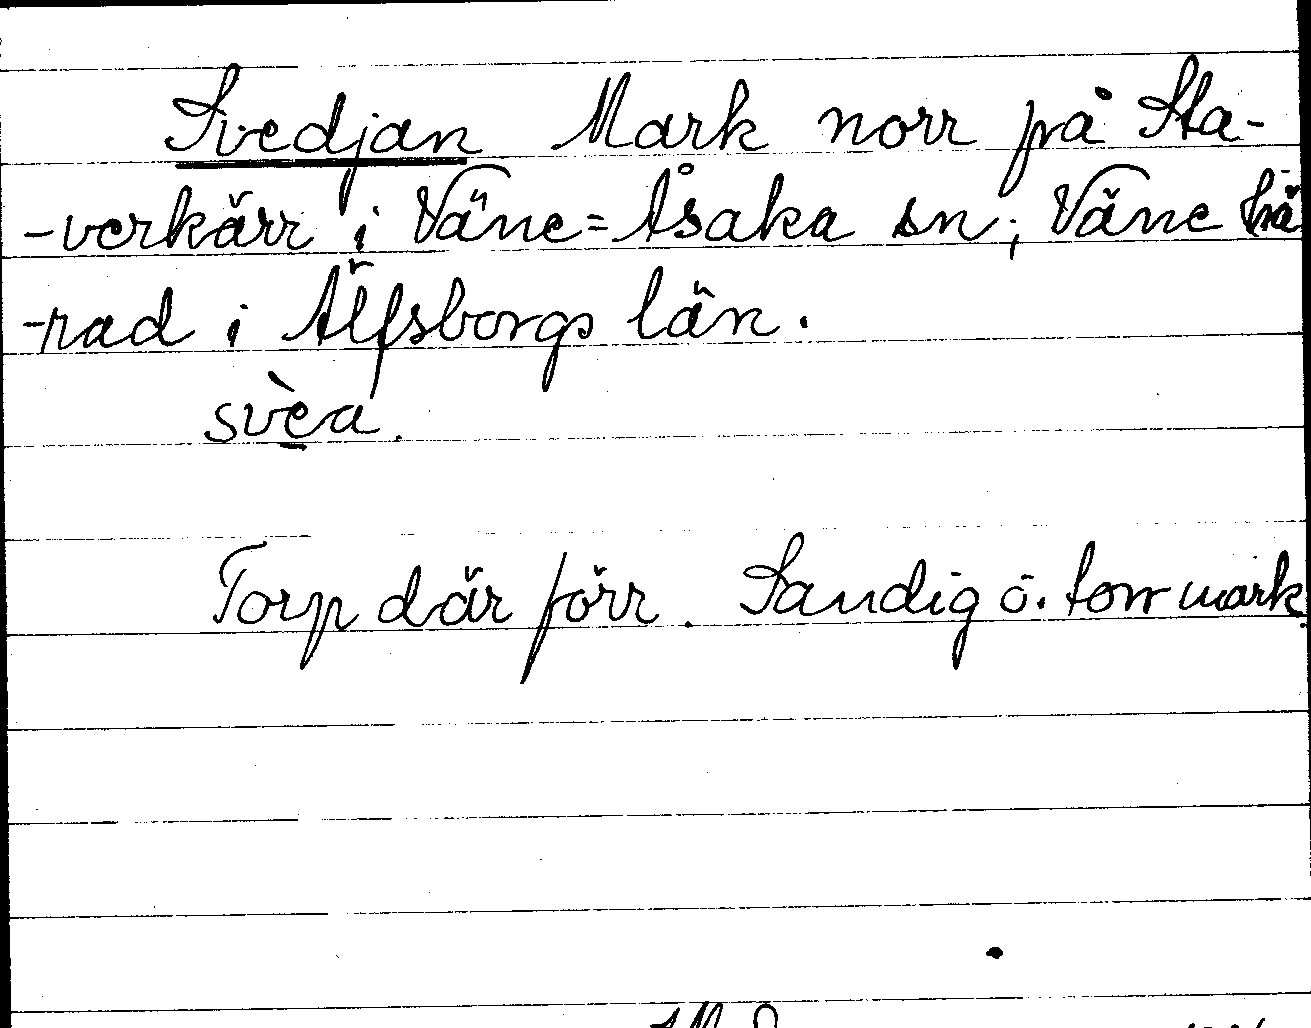 Svedjan Mark norr på Sta-
-verkärr i Väne=Åsaka sn; Väne hä
-rad i Älfsborgs län.
svèa.
Torp där förr. Sandig o. torr mark.